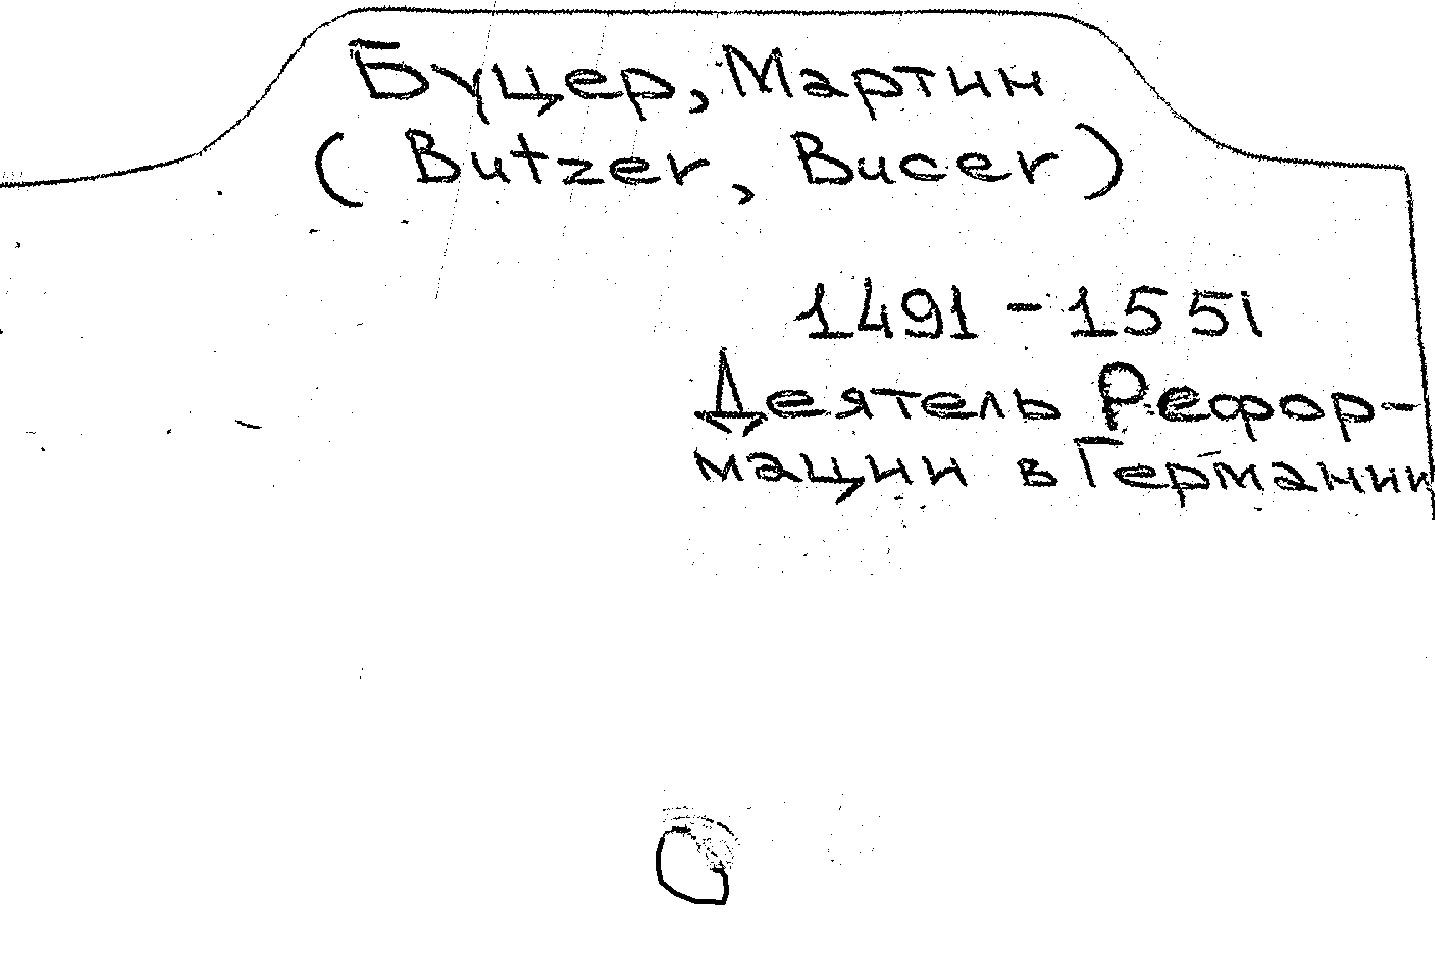 Буцер, Мартин
(Butzer, Bucer)
1491-1551
Деятель Рефор-
мации в Германии